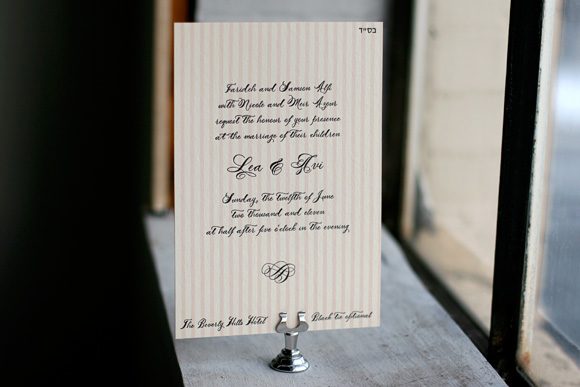 בס״ד
Farideh and Samson Alfi
with Nicole and Meir Azour
request the honour of your presence
at the marriage of their children
Lea & Avi
Sunday, the twelfth of June
two thousand and eleven
at half after five o'clock in the evening
The Beverly Hills Hotel
Black tie optional